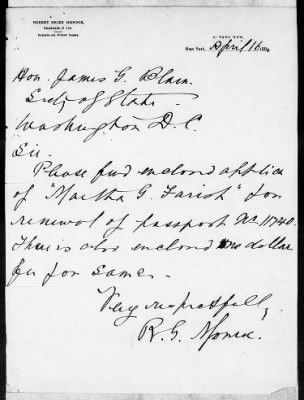 ROBERT GRIER MONROE,
21 PARK ROW,
New York, April 16
Hon. James G. Blain.
Secty of State.
Washington D.C.
Sir.
Please find enclosed applica
of "Martha G. Farish" for
renewal of passport No. 11740.
There is also enclosed one dollar
fee for same.
Very respectfully,
R. G. Monroe.